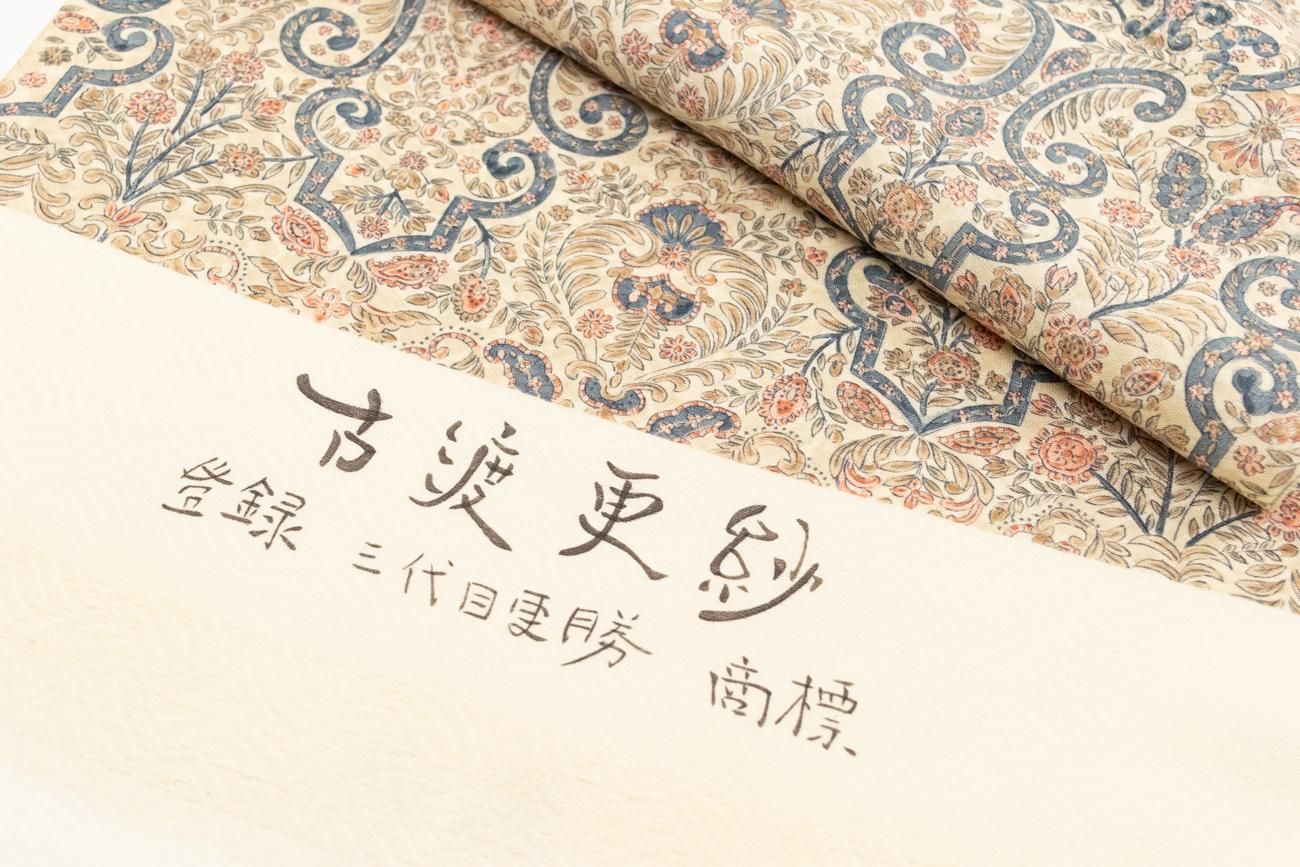 古渡更紗
登録 三代目更勝 商標